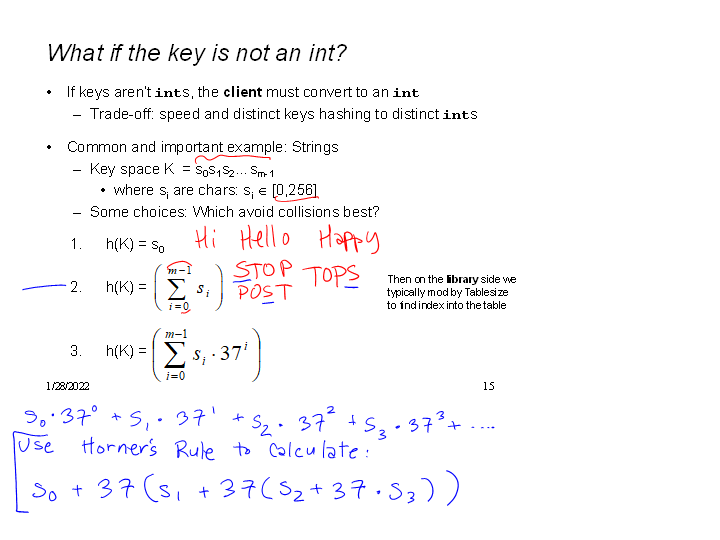 What if the key is not an int?
• If keys aren't ints, the client must convert to an int
– Trade-off: speed and distinct keys hashing to distinct ints
• Common and important example: Strings
– Key space K = s₀s₁s₂…sₘ₋₁
• where sᵢ are chars: sᵢ ∈ [0,256]
– Some choices: Which avoid collisions best?
1. h(K) = s₀ Hi Hello Happy
2. h(K) = (∑_{i=0}^{m−1} sᵢ) STOP TOPS
POST
Then on the library side we
typically mod by Tablesize
to find index into the table
3. h(K) = (∑_{i=0}^{m−1} sᵢ · 37ⁱ)
1/28/2022 15
S₀ · 37⁰ + S₁ · 37¹ + S₂ · 37² + S₃ · 37³ + ....
Use Horner's Rule to calculate:
S₀ + 37(S₁ + 37(S₂ + 37 · S₃))